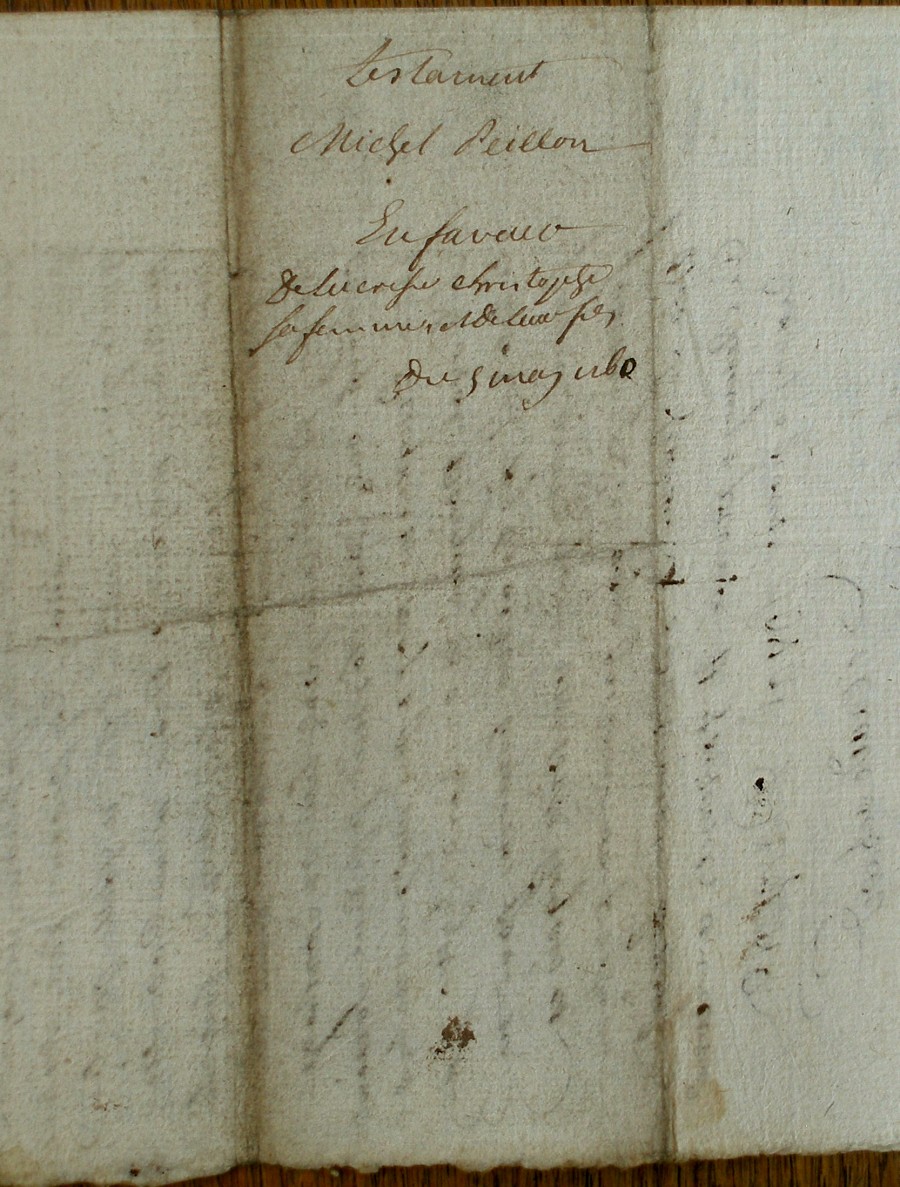 testament
Michel Peillon
En faveur
De lucresse christophe
sa femme, et de leur fils
Du 5 may